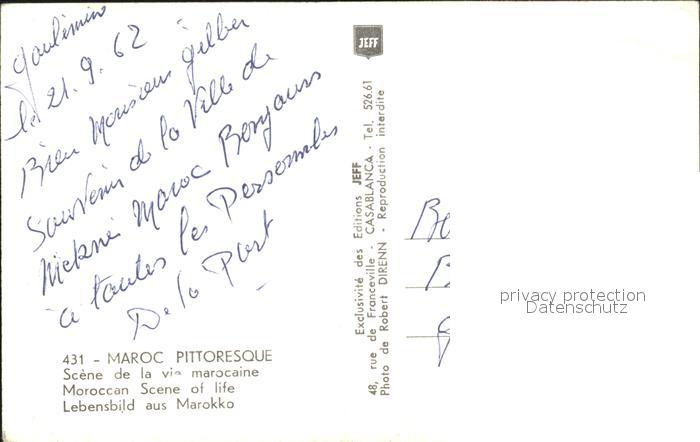 Goulimine
le 21.9.62
Bien Monsieur gilber
Souvenir de la Ville de
Meknè Maroc Bonjours
a toutes les Personnles
De la Part
431 - MAROC PITTORESQUE
Scène de la vie marocaine
Moroccan Scene of life
Lebensbild aus Marokko
JEFF
Exclusivité des Editions JEFF
48, rue de Franceville - CASABLANCA - Tel. 526.61
Photo de Robert DIRENN - Reproduction interdite
privacy protection
Datenschutz